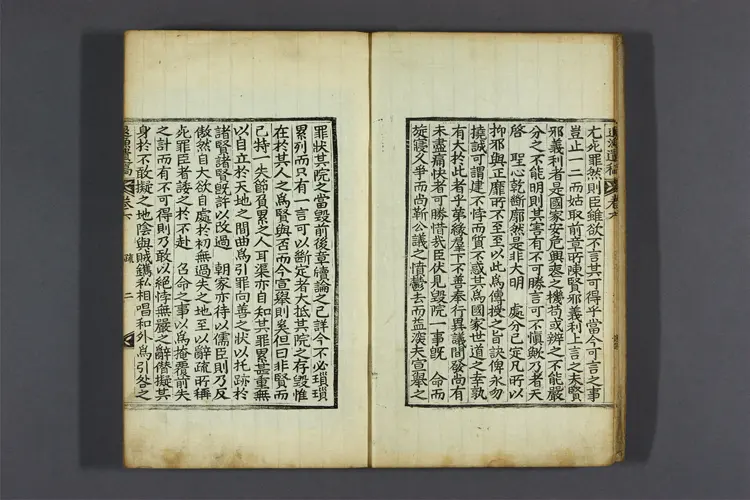 遺稿 卷六
尤死罪然則臣雖欲不言其可得乎當今可言之事
豈止一二而姑取前章所陳賢邪義利上言之夫賢
邪義利者是國家安危興喪之機苟或辨之不能嚴
分之不能明則其害有不可勝言可不愼歟乃者天
啓 聖心乾斷廓然是非大明 處分已定凡所以
抑邪與正靡所不至至以此爲傳授之旨訣俾永勿
撓誠可謂建不悖而質不惑其爲國家世道之幸孰
有大於此者乎第緣羣下不善奉行異議間發尚有
未盡痛快者可勝惜哉臣伏見毀院一事旣 命而
旋寢久爭而尚靳公議之憤鬱去而益深夫宣擧之
罪狀其院之當毀前後章牘論之已詳今不必瑣瑣
累列而只有一言可以斷定者大抵其院之存毀惟
在於其人之爲賢與否而今宣擧則奚但曰非賢而
已特一失節負累之人耳渠亦自知其罪累甚重無
以自立於天地之間曲爲引罪向善之狀以托跡於
諸賢諸賢旣許以改過 朝家亦待以儒臣則乃反
傲然自大欲自處於初無過失之地至以辭疏所稱
死罪臣者諉之於不赴 召命之事以爲掩覆前失
之計而有不可得則乃敢以絕悖無嚴之辭僭擬其
身於不敢擬之地陰與賊鑴私相唱和外爲引咎之
遺稿 卷六 疏 二